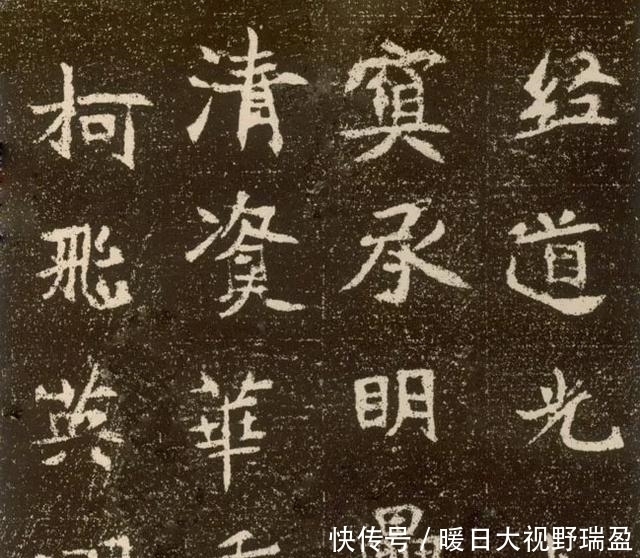 经道光
承明
清資華
柯飛英
快传号／暖日大视野瑞盈